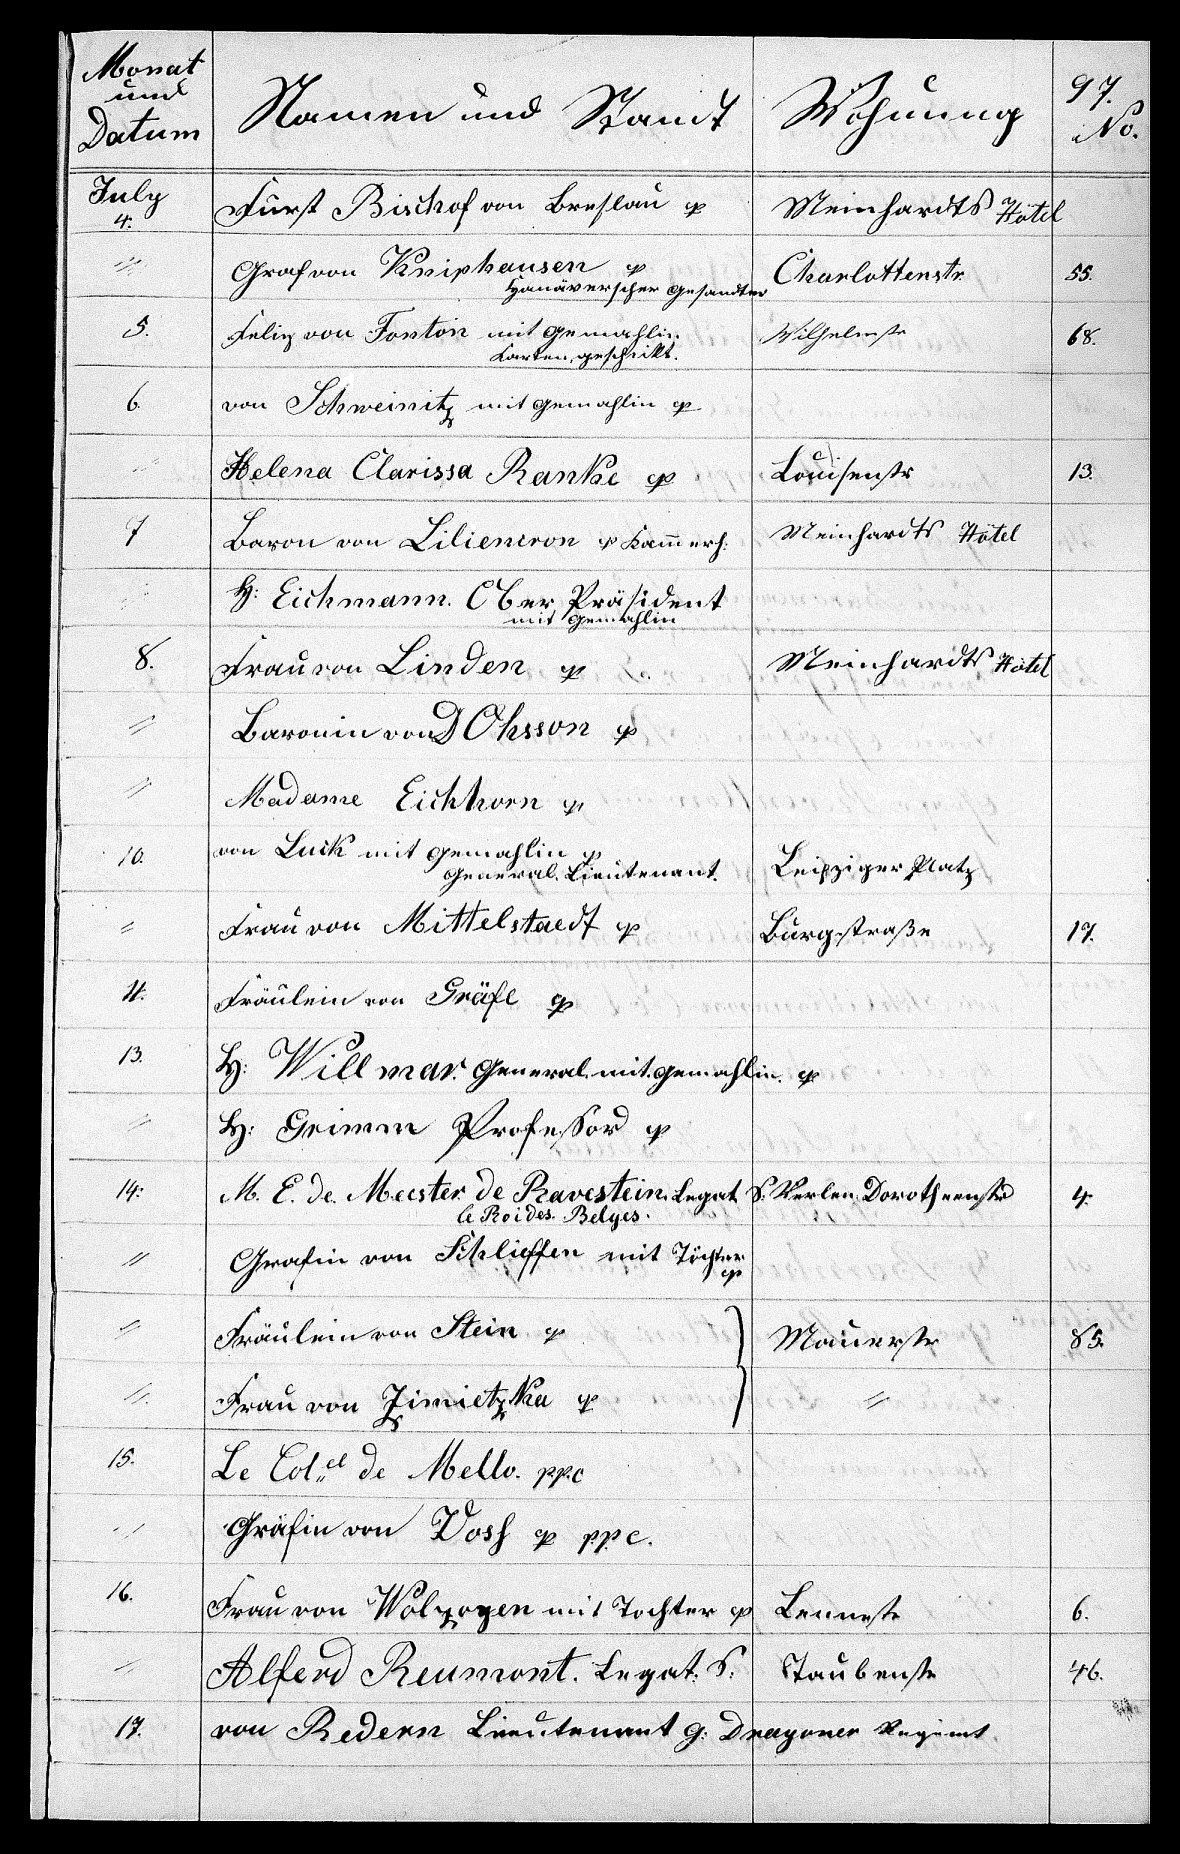 Monat und Datum Namen und Standt Wohnung 97. No.
July 4. Fürst Bischof von Breslau p Meinhardts Hôtel
" Graf von Kniphausen p Charlottenstr 55.
Hanäverscher Gesandter
5. Felix von Fonton mit Gemahlin Wilhelmstr 68.
Karten geschickt.
6. von Schweinitz mit Gemahlin p
" Helena Clarissa Ranke p Louisenstr 13.
7 Baron von Liliencron p Kammerh: Meinhardts Hôtel
" H: Eichmann. Ober Präsident
mit Gemahlin
8. Frau von Linden p Meinhardts Hôtel
" Baronin von D Ohsson p
" Madame Eichhorn p
10. von Luck mit Gemahlin p
General. Lieutenant. Leipziger Platz
" Frau von Mittelstaedt p Burgstraße 17.
11. Fräulein von Gräfe p
13. H: Willmar. General. mit. Gemahlin. p
" H: Grimm Professor p
14. M. E. de Meester de Ravestein. Legat S. Verlen. Dorotheenstr 4.
le Roi des. Belges.
" Grafin von Schlieffen mit Töchter p
" Fräulein von Stein p Mauerstr 85.
" Frau von Zimietzka p "
15. Le Col.el de Mello. ppc
" Gräfin von Voss p p.p.c.
16. Frau von Wolzogen mit Tochter p Lennestr 6.
" Alferd Reumont. Legat. S. Taubenstr 46.
17. von Redern Lieutenant G: Dragoner Regimt.